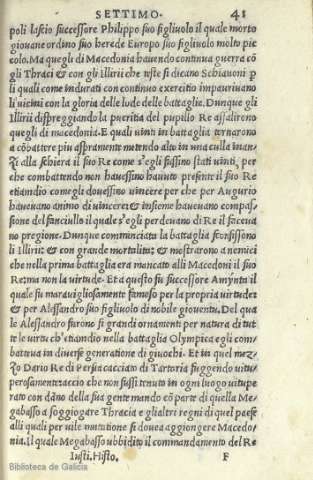 SETTIMO. 41
poli lascio successore Philippo suo figliuolo il quale morto
giouane ordino suo herede Europo suo figliuolo molto pic
colo. Ma quegli di Macedonia hauendo continua guerra cō
gli Thraci & con gli Illirii che teste si dicano Schiauoni p
li quali come indurati con continuo exercitio impauriuano
li uicini con la gloria delle lude delle battaglie. Dunque gli
Illirii dispreggiando la pueritia del pupillo Re assalirono
quegli di macedonia. E quali uinti in battaglia tornarono
a cōbattere piu aspramente mettendo alto in una culla inan-
zi alla schiera il suo Re come s'egli fussino stati uinti per
che combattendo non hauessino hauuto presente il suo Re
etiandio comegli douessino uincere per che per Augurio
haueuano animo di uincere: & insieme haueuano compas-
sione del fanciullo il quale s'egli perdeuano di Re il faceua
no pregione. Dunque comminciata la battaglia sconfissono
li Illirii: & con grande mortalita: & mostrarono a nemici
che nella prima battaglia era mancato alli Macedoni il suo
Re: ma non la uirtude. Et a questo fu successore Amynta il
quale fu marauigliosamente famoso per la propria uirtude:
& per Alessandro suo figliuolo di nobile giouentu. Del qua
le Alessandro furono si grandi ornamenti per natura di tut
te le uirtu ch'etiandio nella battaglia Olympica egli com-
batteua in diuerse generatione di giuochi. Et in quel mez-
zo Dario Re di Persia cacciato di Tartoria fuggendo uitu-
perosamente accio che non fussi tenuto in ogni luogo uitupe
rato con dāno della sua gente mando cō parte di quella Me-
gabasso a soggiogare Thracia e gli altri regni di quel paese
alli quali per uile mutatione si douea aggiongere Macedo-
nia. Il quale Megabasso ubbidito il commandamento del Re
Iusti. Histo. F
Biblioteca de Galicia